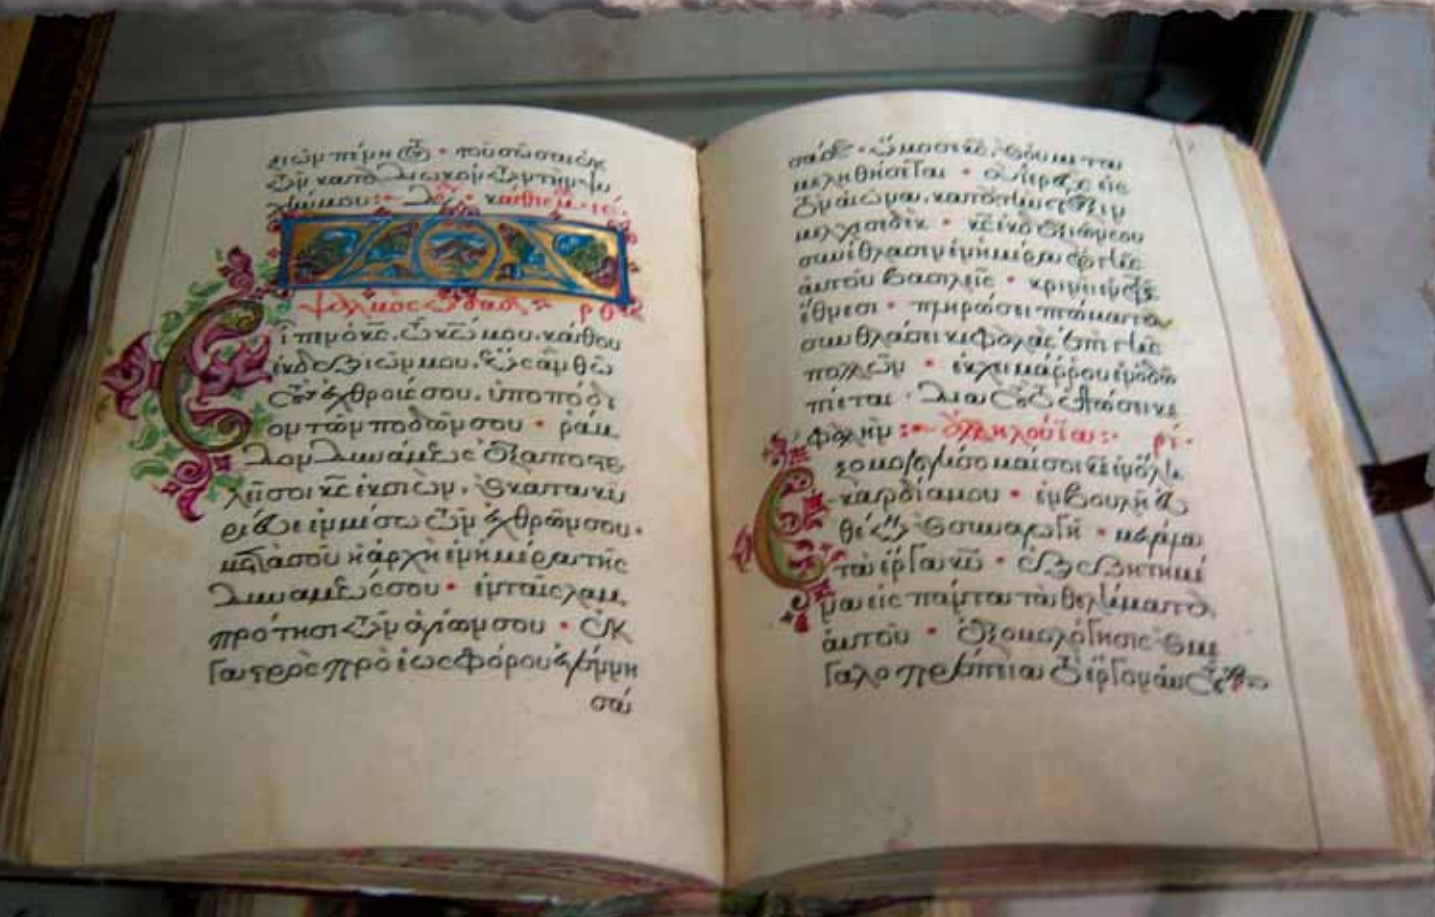 ξιῶν πένητος · τοῦ σῶσαι ἐκ
τῶν καταδιωκόντων τὴν ψυ
χήν μου :
ψαλμὸς τῷ δαδ ρθ
Εἶπεν ὁ κς, τῷ κω μου, κάθου
ἐκ δεξιῶν μου, ἕως ἂν θῶ
τοὺς ἐχθρούς σου, ὑποπόδι
ον τῶν ποδῶν σου · ῥάβ
δον δυνάμεως ἐξαποστε
λεῖ σοι κς ἐκ σιών, καὶ κατακυ
ρίευε ἐν μέσω τῶν ἐχθρῶν σου.
μετὰ σοῦ ἡ ἀρχὴ ἐν ἡμέρα τῆς
δυνάμεώς σου · ἐν ταῖς λαμ
πρότησι τῶν ἁγίων σου · ἐκ
γαστρὸς πρὸ ἑωσφόρου ἐγέννη
σά
σά σε · ὤμοσε κς, καὶ οὐ μετα
μεληθήσεται · σὺ ἱερεὺς εἰς
τὸν αἰῶνα, κατὰ τὴν τάξιν
μελχισεδέκ · κς ἐκ δεξιῶν σου
συνέθλασεν ἐν ἡμέρα ὀργῆς
αὐτοῦ βασιλεῖς · κρινεῖ ἐν τοῖς
ἔθνεσι · πληρώσει πτώματα
συνθλάσει κεφαλὰς ἐπὶ γῆς
πολλῶν · ἐκ χειμάρρου ἐν ὁδῶ
πίεται · διὰ τοῦτο ὑψώσει κε
φαλήν : ἀλληλούϊα : ρι ·
Ἐξομολογήσομαί σοι κε ἐν ὅλη
καρδία μου · ἐν βουλῆ εὐ
θέων καὶ συναγωγῆ · μεγάλα
τὰ ἔργα κυ · ἐξεζητημέ
να εἰς πάντα τὰ θελήματα
αὐτοῦ · ἐξομολόγησις καὶ με
γαλοπρέπεια τὸ ἔργον αὐτοῦ